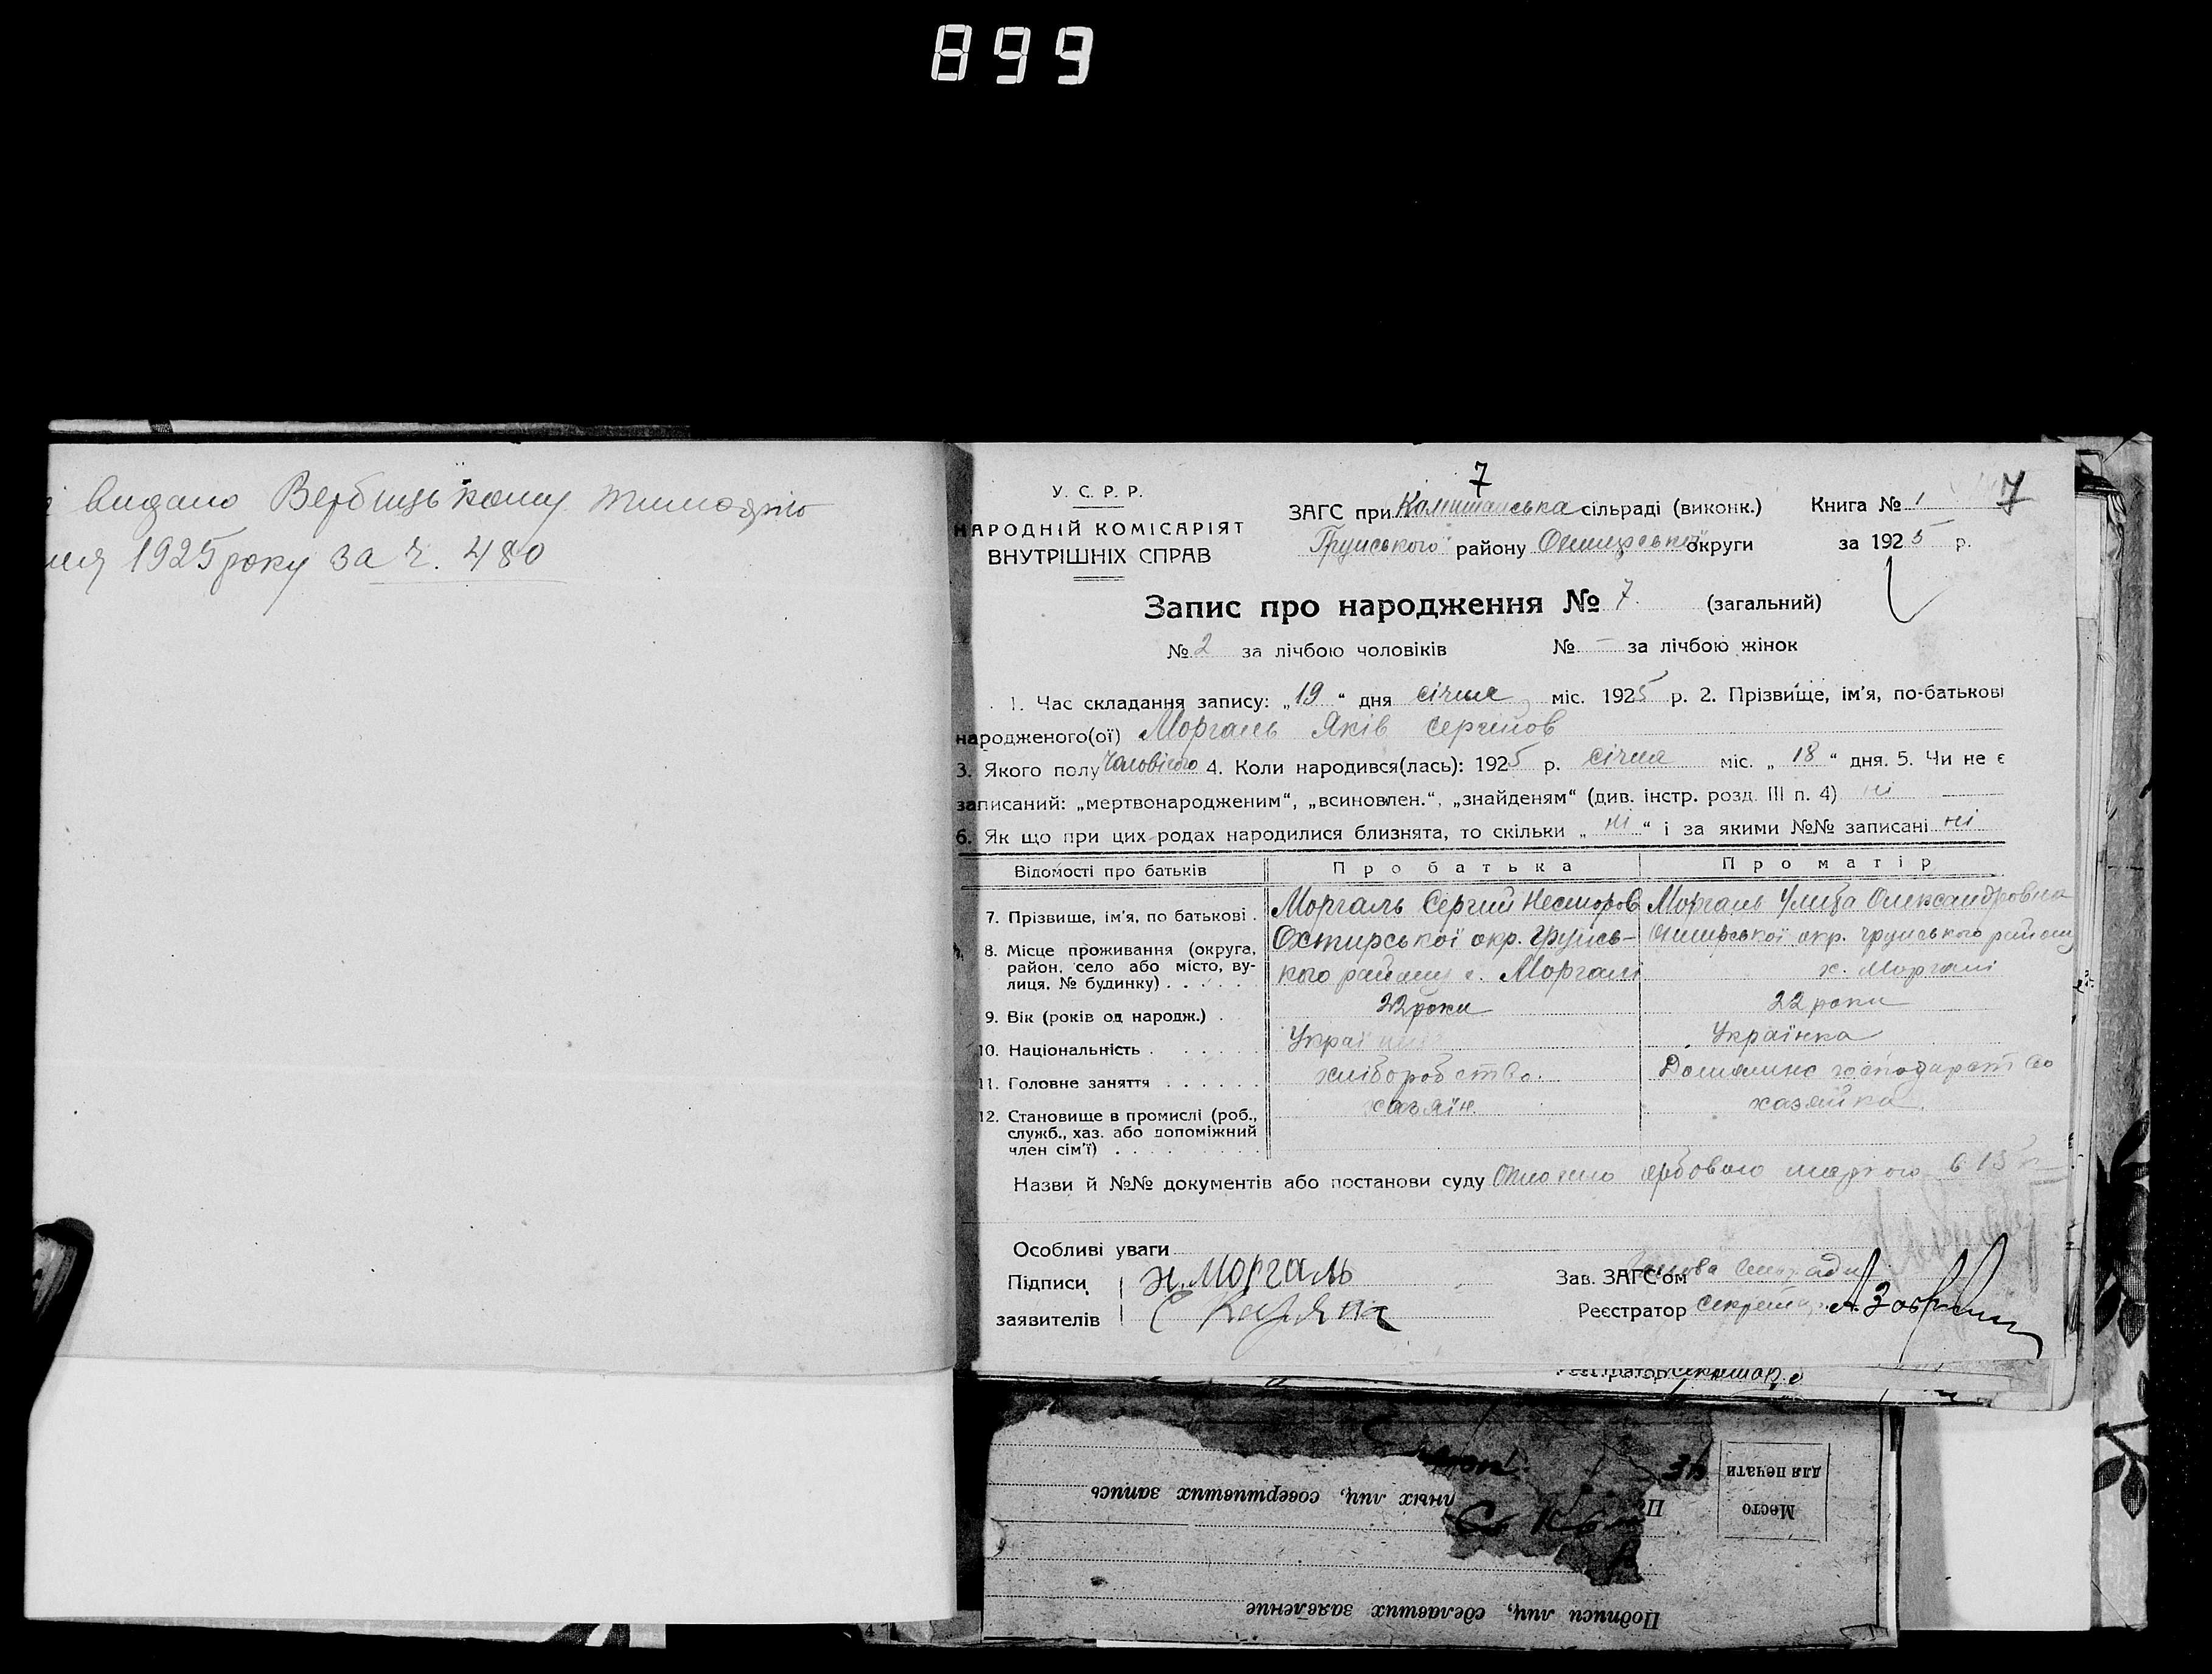 899
видано Вербицькому Тимофію
1925 року за ч. 480
7
У. С. Р. Р.
НАРОДНІЙ КОМІСАРІЯТ
ВНУТРІШНІХ СПРАВ
ЗАГС при Комишанська сільраді (виконк.)
Грунського району Охтирської округи
Книга № 1
7
за 1925 р.
Запис про народження № 7. (загальний)
№ 2 за лічбою чоловіків № — за лічбою жінок
1. Час складання запису: „19“ дня січня міс. 1925 р. 2. Прізвище, ім'я, по-батькові
народженого(ої) Моргаль Яків Сергійов
3. Якого полу Чоловічого 4. Коли народився(лась): 1925 р. січня міс. „18“ дня. 5. Чи не є
записаний: „мертвонародженим“, „всиновлен.“, „знайденям“ (див. інстр. розд. III п. 4) ні
6. Як що при цих родах народилися близнята, то скільки „ні“ і за якими №№ записані ні
Відомості про батьків Про батька Про матір
7. Прізвище, ім'я, по батькові . Моргаль Сергий Несторов Моргаль Улита Олександровна
8. Місце проживання (округа, район, село або місто, вулиця, № будинку) . . . . . Охтирської окр. Грунсь-
кого району х. Моргалі
Охтирської окр. грунського району
х. Моргалі
9. Вік (років од народж.) . 22 роки 22 роки
10. Національність . . . . . . Украї Українка
11. Головне заняття . . . . . . хліборобство. Домашнє господарство
12. Становище в промислі (роб., служб., хаз. або допоміжний член сім'ї) . . . . . . . . . хазяїн. хазяйка.
Назви й №№ документів або постанови суду Оплачено гербовою маркою в 15 к
Особливі уваги
Підписи
заявителів
Н. Моргаль
Зав. ЗАГС'ом Голова Сільради
Реєстратор Секретар
Реєстратор
Место
для печати
лиц, совершивших запись
Подписи лиц, сделавших заявление